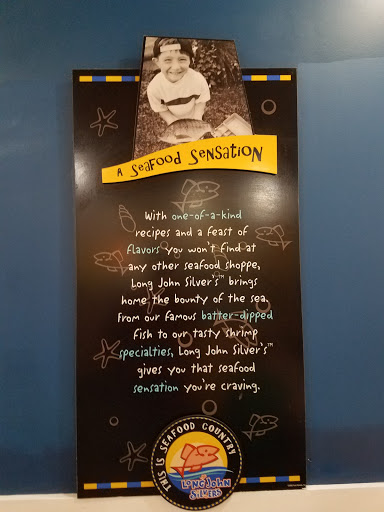 A SEAFOOD SENSATION
With one-of-a-kind
recipes and a feast of
flavors you won't find at
any other seafood shoppe,
Long John Silver's™ brings
home the bounty of the sea.
From our famous batter-dipped
fish to our tasty shrimp
specialties, Long John Silver's™
gives you that seafood
sensation you're craving.
THIS IS SEAFOOD COUNTRY
LONG JOHN
SILVER'S